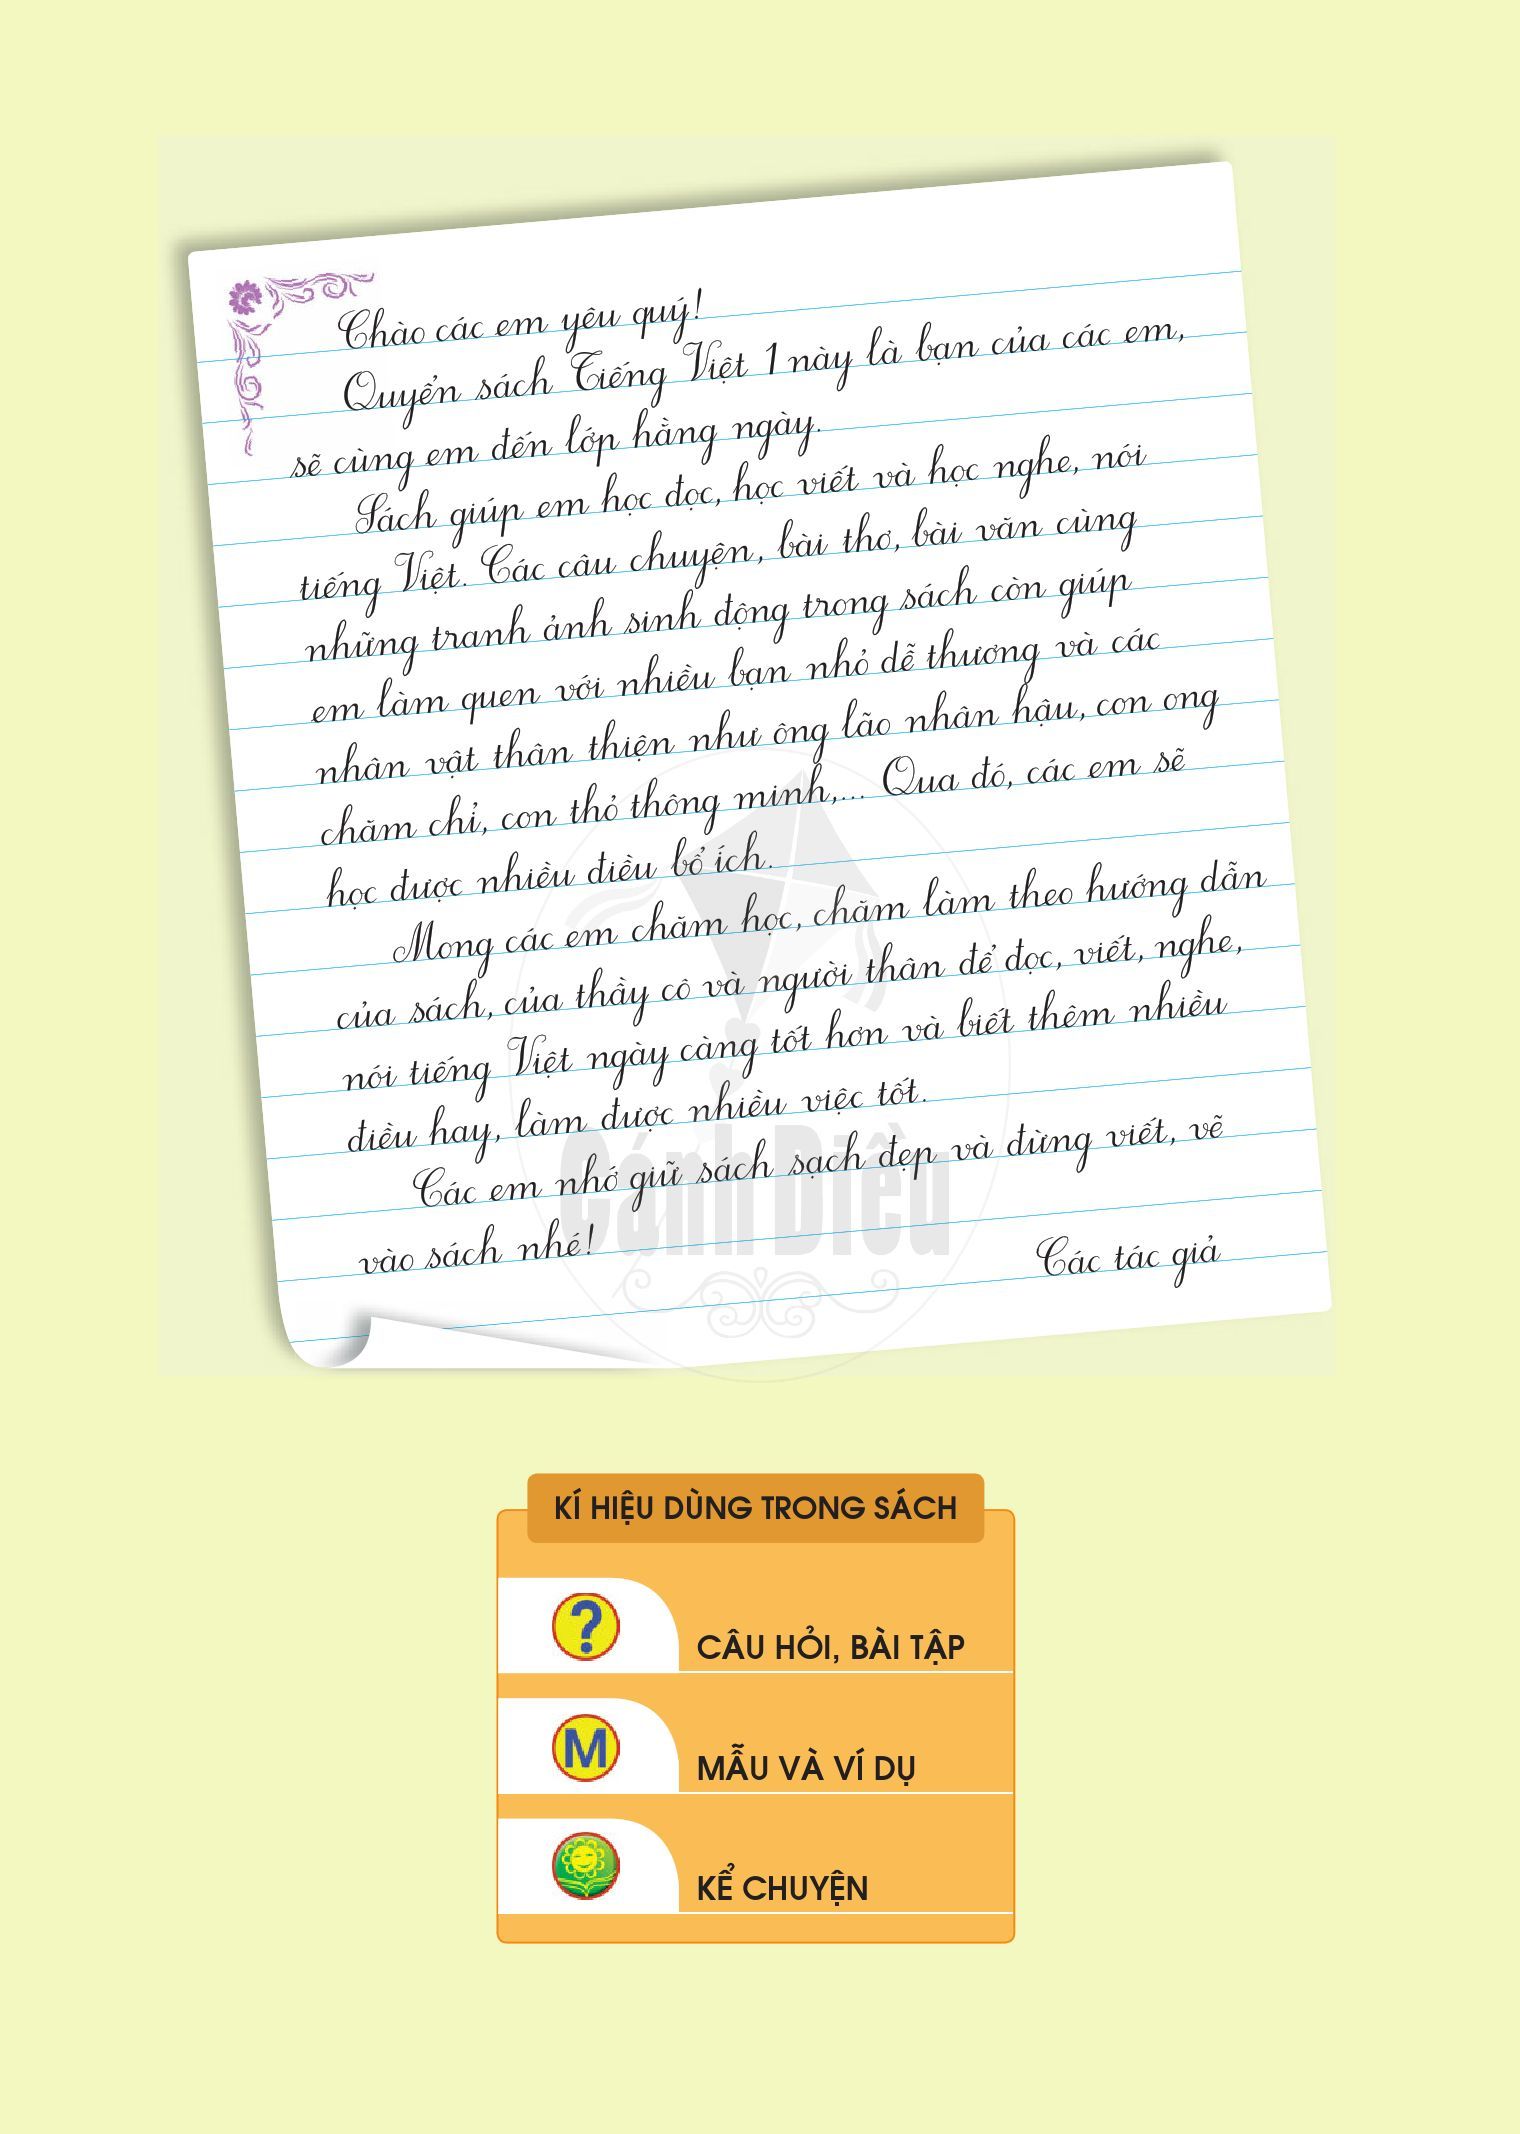 Chào các em yêu quý!
Quyển sách Tiếng Việt 1 này là bạn của các em,
sẽ cùng em đến lớp hằng ngày.
Sách giúp em học đọc, học viết và học nghe, nói
tiếng Việt. Các câu chuyện, bài thơ, bài văn cùng
những tranh ảnh sinh động trong sách còn giúp
em làm quen với nhiều bạn nhỏ dễ thương và các
nhân vật thân thiện như ông lão nhân hậu, con ong
chăm chỉ, con thỏ thông minh,... Qua đó, các em sẽ
học được nhiều điều bổ ích.
Mong các em chăm học, chăm làm theo hướng dẫn
của sách, của thầy cô và người thân để đọc, viết, nghe,
nói tiếng Việt ngày càng tốt hơn và biết thêm nhiều
điều hay, làm được nhiều việc tốt.
Các em nhớ giữ sách sạch đẹp và đừng viết, vẽ
vào sách nhé!
Các tác giả
Cánh Diều
KÍ HIỆU DÙNG TRONG SÁCH
?
CÂU HỎI, BÀI TẬP
M
MẪU VÀ VÍ DỤ
KỂ CHUYỆN